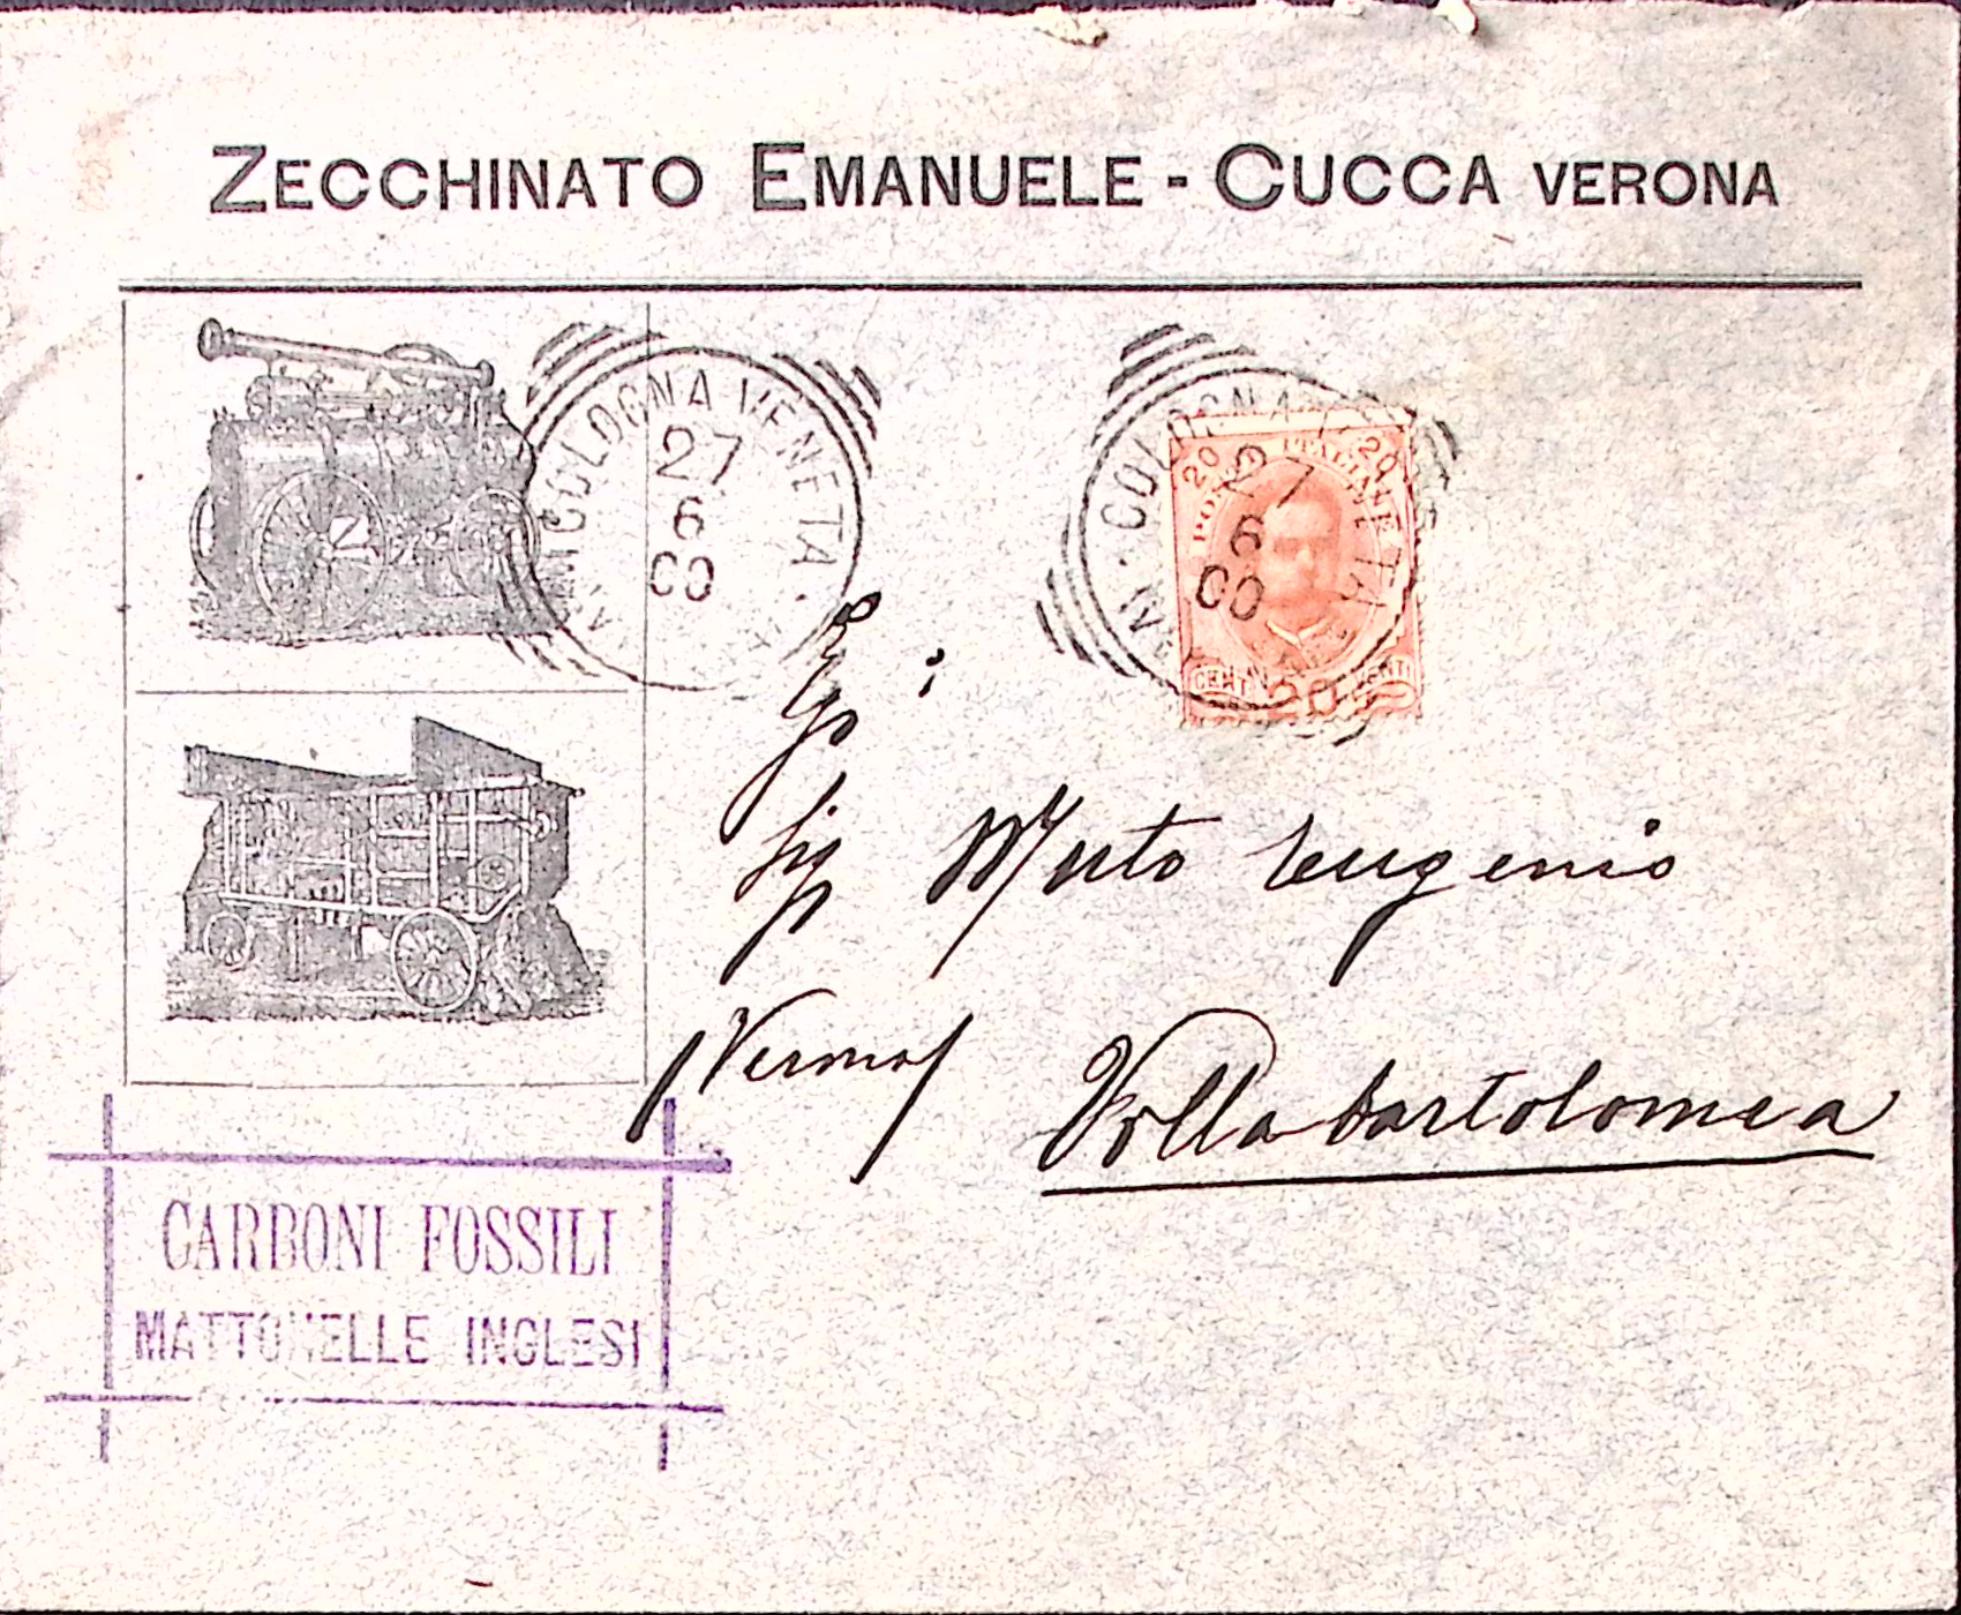 ZECCHINATO EMANUELE - CUCCA VERONA
COLOGNA VENETA
27
6
00
COLOGNA VENETA
27
6
00
20 20
POSTE ITALIANE
CENT 20 VENTI
Sig Eugenio
Villabartolomea
CARBONI FOSSILI
MATTONELLE INGLESI